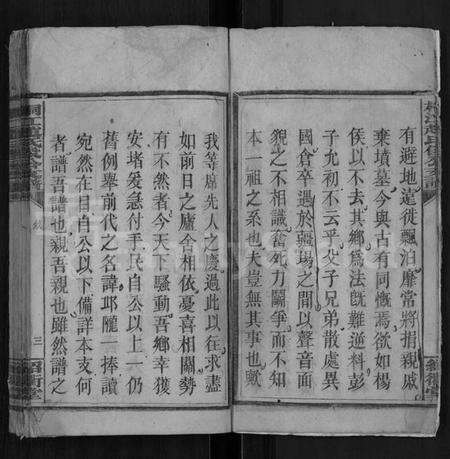 有避地遠徙飄泊靡常將指親戚
棄墳墓今與古有同慨焉欲如楊
侯以不去其鄉為法既難逆料彭
子允初不云乎父子兄弟散處異
國倉卒遇於疆場之間以聲音面
貌之不相識奮死力鬬爭而不知
本一祖之系也夫豈無其事也歟
我等席先人之慶過此以往求盡
如前日之廬舍相依憂喜相關勢
有不然者今天下騷動吾鄉幸獲
安堵爰急付手民自公以上一仍
舊例舉前代之名諱邱隴一捧讀
宛然在目自公以下備詳本支何
者譜吾譜也親吾親也雖然譜之
三